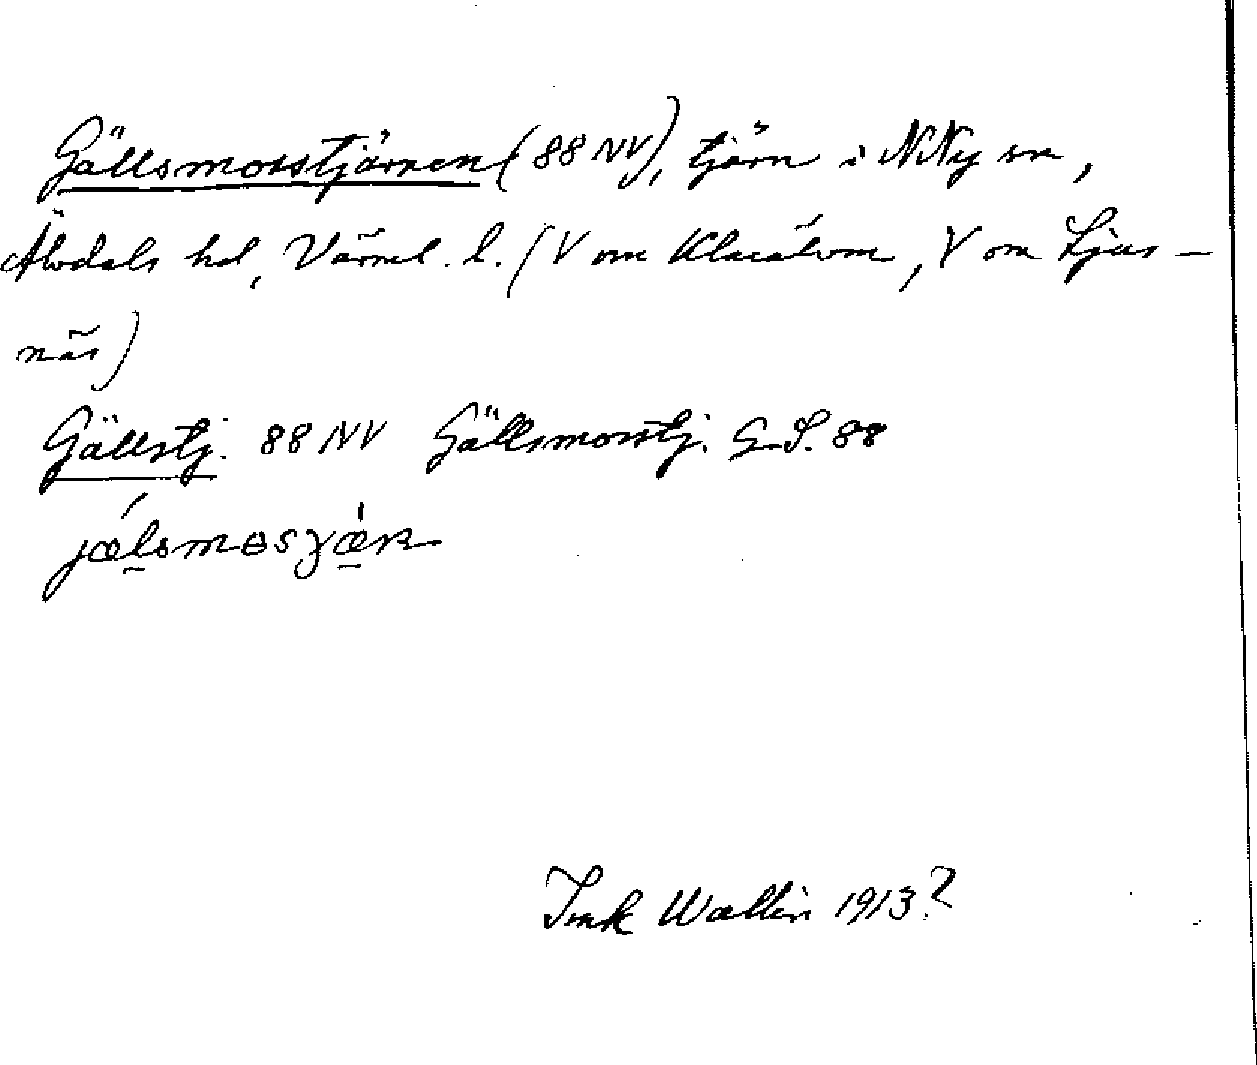 Gällsmosstjärnen (88 NV), tjärn i N Ny sn,
Älvdals hd, Värml. l. (V om Klarälven, V om Ljus-
näs)
Gällstj. 88 NV Gällsmosstj. G.S. 88
Wallin 1913?